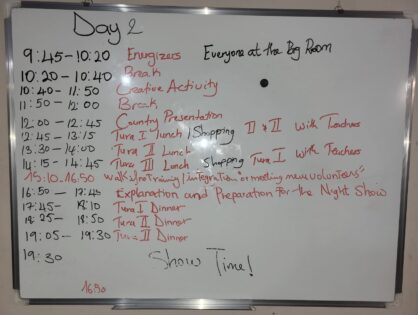 Day 2
9:45-10:20 Enugizers Everyone at the Big Room
10:20-10:40 Break
10:40-11:50 Creative Activity
11:50-12:00 Break
12:00-12:45 Country Presentation
12:45-13:15 Tura I Lunch / Shopping II & III with Teachers
13:30-14:00 Tura II Lunch
14:15-14:45 Tura III Lunch Shopping Tura I with Teachers
15:10-16:50 walk / integration or meeting new volunteers
16:50-17:40 Explanation and Preparation for the Night Show
17:45-18:10 Tura I Dinner
18:25-18:50 Tura II Dinner
19:05-19:30 Tura III Dinner
19:30 Show Time!
16:50